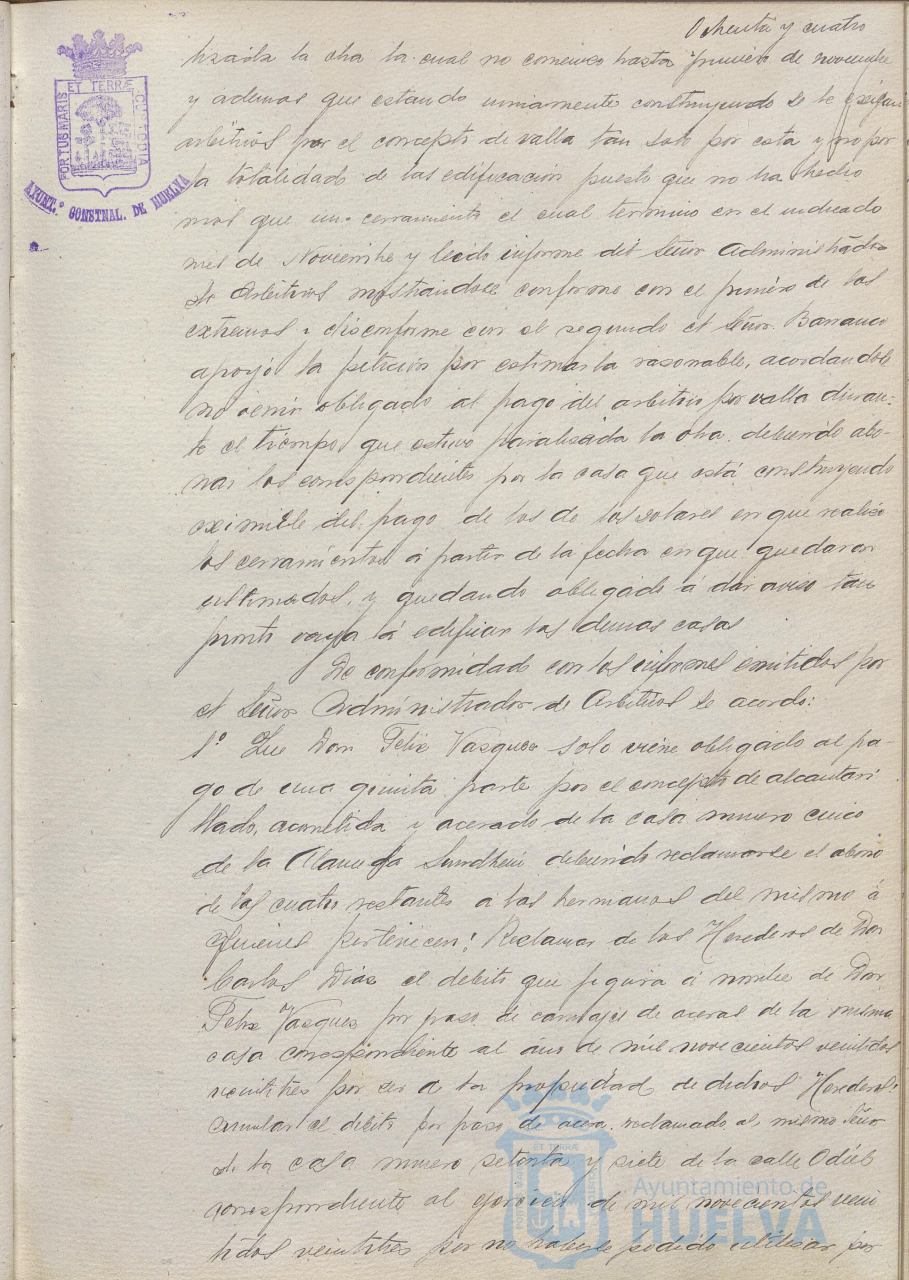 Ochenta y cuatro
PORTUS MARIS ET TERRÆ CUSTODIA
AYUNT.º CONSTNAL. DE HUELVA
lizada la obra la cual no comenzo hasta primero de noviembre
y ademas que estando unicamente construyendo se le exigan
arbitrios por el concepto de valla tan solo por esta y no por
la totalidad de las edificacion puesto que no ha hecho
mas que un cerramiento el cual termino en el indicado
mes de Noviembre y leido informe del Señor Administrador
de Arbitrios mostrandose conforme con el primero de los
extremos y disconforme con el segundo el Señor Barranco
apoyó la peticion por estimarla rasonable, acordandose
no venir obligado al pago del arbitrio por valla duran-
te el tiempo que estuvo paralizada la obra, debiendo abo-
nar los correspondientes por la casa que está construyendo
eximirle del pago de los de los solares en que realizó
los cerramientos á partir de la fecha en que quedaron
ultimados, y quedando obligado á dar aviso tan
pronto vaya á edificar las demas casas
De conformidad con los informes emitidos por
el Señor Administrador de Arbitrios se acordó:
1º Que Don Felix Vasquez solo viene obligado al pa-
go de una quinta parte por el concepto de alcantari
llado, acometida y acerado de la casa numero cinco
de la Alameda Sundheim debiendo reclamarse el abono
de las cuatro restantes a los hermanos del mismo á
quienes pertenecen: Reclamar de los Herederos de Don
Carlos Dias el debito que figura á nombre de Don
Felix Vasquez por paso de carruajes de aceras de la misma
casa correspondiente al año de mil novecientos veintidos
veintitres por ser de la propiedad de dichos Herederos:
anular el debito por paso de acera reclamado al mismo Señor
de la casa numero setenta y siete de la calle Odiel
correspondiente al ejercicio de mil novecientos vein
tidos veintitres por no haberlo podido utilizar por
ET TERRÆ
Ayuntamiento de
HUELVA